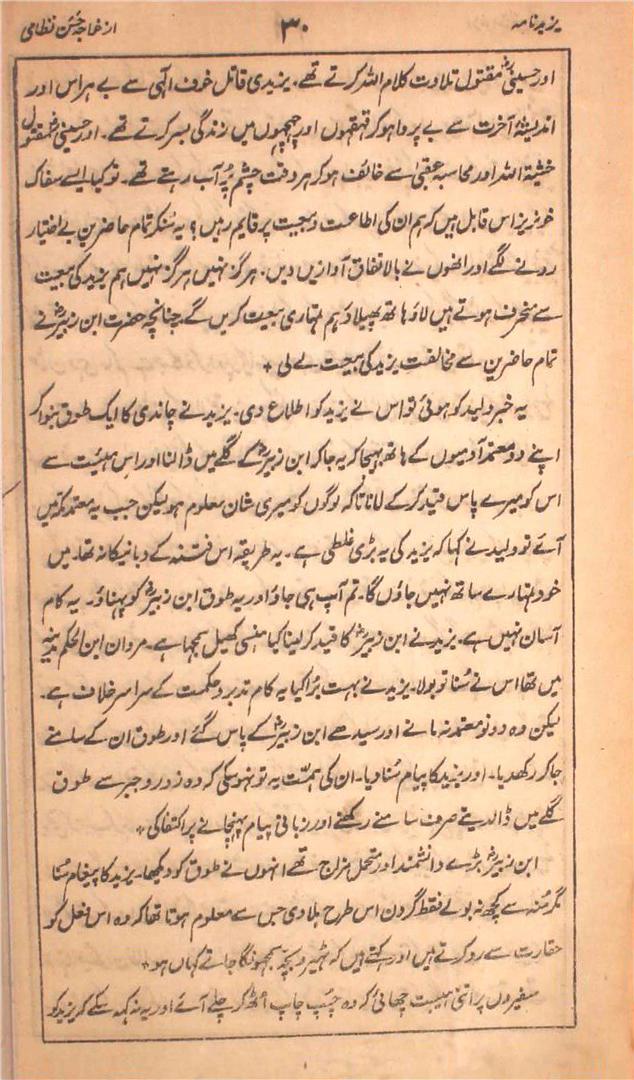 یزید نامہ ۳۰ از خواجہ حسن نظامی
اور حسینیؓ مقتول تلاوت کلام اللہ کرتے تھے۔ یزیدی قاتل خوف الٰہی سے بے ہراس اور
اندیشۂ آخرت سے بے پروا ہوکر قہقہوں اور چہچہوں میں زندگی بسر کرتے تھے۔ اور حسینیؓ مقتول
خشیۃ اللہ اور محاسبہ عقبیٰ سے خائف ہوکر ہر وقت چشم پُر آب رہتے تھے۔ تو کیا ایسے سفاک
خونریز اس قابل ہیں کہ ہم ان کی اطاعت و بیعت پر قایم رہیں؟ یہ سُنکر تمام حاضرین بے اختیار
رونے لگے اور انھوں نے بالاتفاق آوازیں دیں۔ ہرگز نہیں ہرگز نہیں ہم یزید کی بیعت
سے منحرف ہوتے ہیں لاؤ ہاتھ پھیلاؤ ہم تمہاری بیعت کریں گے۔ چنانچہ حضرت ابن زبیرؓ نے
تمام حاضرین سے مخالفتِ یزید کی بیعت لے لی +
یہ خبر ولید کو ہوئی تو اس نے یزید کو اطلاع دی۔ یزید نے چاندی کا ایک طوق بنوا کر
اپنے دو معتمد آدمیوں کے ہاتھ بھیجا کہ یہ جاکر ابن زبیرؓ کے گلے میں ڈالنا اور اس ہیئت سے
اس کو میرے پاس قید کرکے لانا تاکہ لوگوں کو میری شان معلوم ہو لیکن جب یہ معتمد مکہ میں
آئے تو ولید نے کہا کہ یزید کی یہ بڑی غلطی ہے۔ یہ طریقہ اس فتنہ کے دبانیکا نہ تھا۔ میں
خود تمہارے ساتھ نہیں جاؤں گا۔ تم آپ ہی جاؤ اور یہ طوق ابن زبیرؓ کو پہناؤ۔ یہ کام
آسان نہیں ہے۔ یزید نے ابن زبیرؓ کا قید کرلینا کیا ہنسی کھیل سمجھا ہے۔ مروان ابن الحکم مدینہ
میں تھا اس نے سُنا تو بولا۔ یزید نے بہت بُرا کیا یہ کام تدبر و حکمت کے سراسر خلاف ہے۔
لیکن وہ دونو معتمد نہ مانے اور سیدھے ابن زبیرؓ کے پاس گئے اور طوق ان کے سامنے
جاکر رکھدیا۔ اور یزید کا پیام سُنا دیا۔ ان کی ہمّت یہ تو نہوسکی کہ وہ زور و جبر سے طوق
گلے میں ڈالدیتے صرف سامنے رکھنے اور زبانی پیام پہنچانے پر اکتفا کی +
ابن زبیرؓ بڑے دانشمند اور متحمل مزاج تھے انہوں نے طوق کو دیکھا۔ یزید کا پیغام سُنا
مگر مُنہ سے کچھ نہ بولے فقط گردن اس طرح ہلا دی جس سے معلوم ہوتا تھا کہ وہ اس فعل کو
حقارت سے رد کرتے ہیں اور کہتے ہیں کہ ٹھیرو بچّہ سمجھونگا جاتے کہاں ہو +
سفیروں پر اتنی ہیبت چھائی کہ وہ چُپ چاپ اُٹھ کر چلے آئے اور یہ نہ کہہ سکے کہ یزید کو